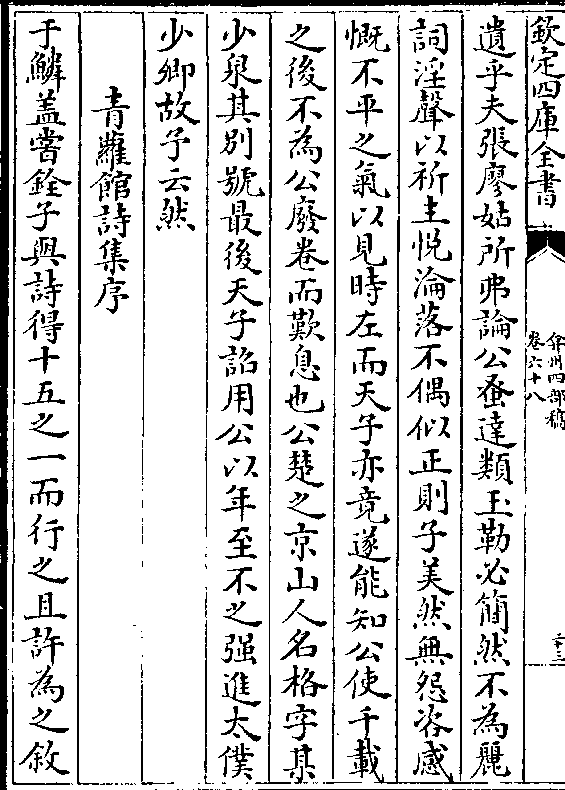 欽定四庫全書
弇州四部稿
卷六十八
二十三
遺乎夫張廖姑所弗論公蚤達類王勒必簡然不為麗
詞淫聲以祈主悅淪落不偶似正則子美然無怨咨感
慨不平之氣以見時左而天子亦竟遂能知公使千載
之後不為公廢卷而歎息也公楚之京山人名格字某
少泉其别號最後天子詔用公以年至不之强進太僕
少卿故予云然
青蘿館詩集序
于鱗盖嘗銓子與詩得十五之一而行之且許為之敘